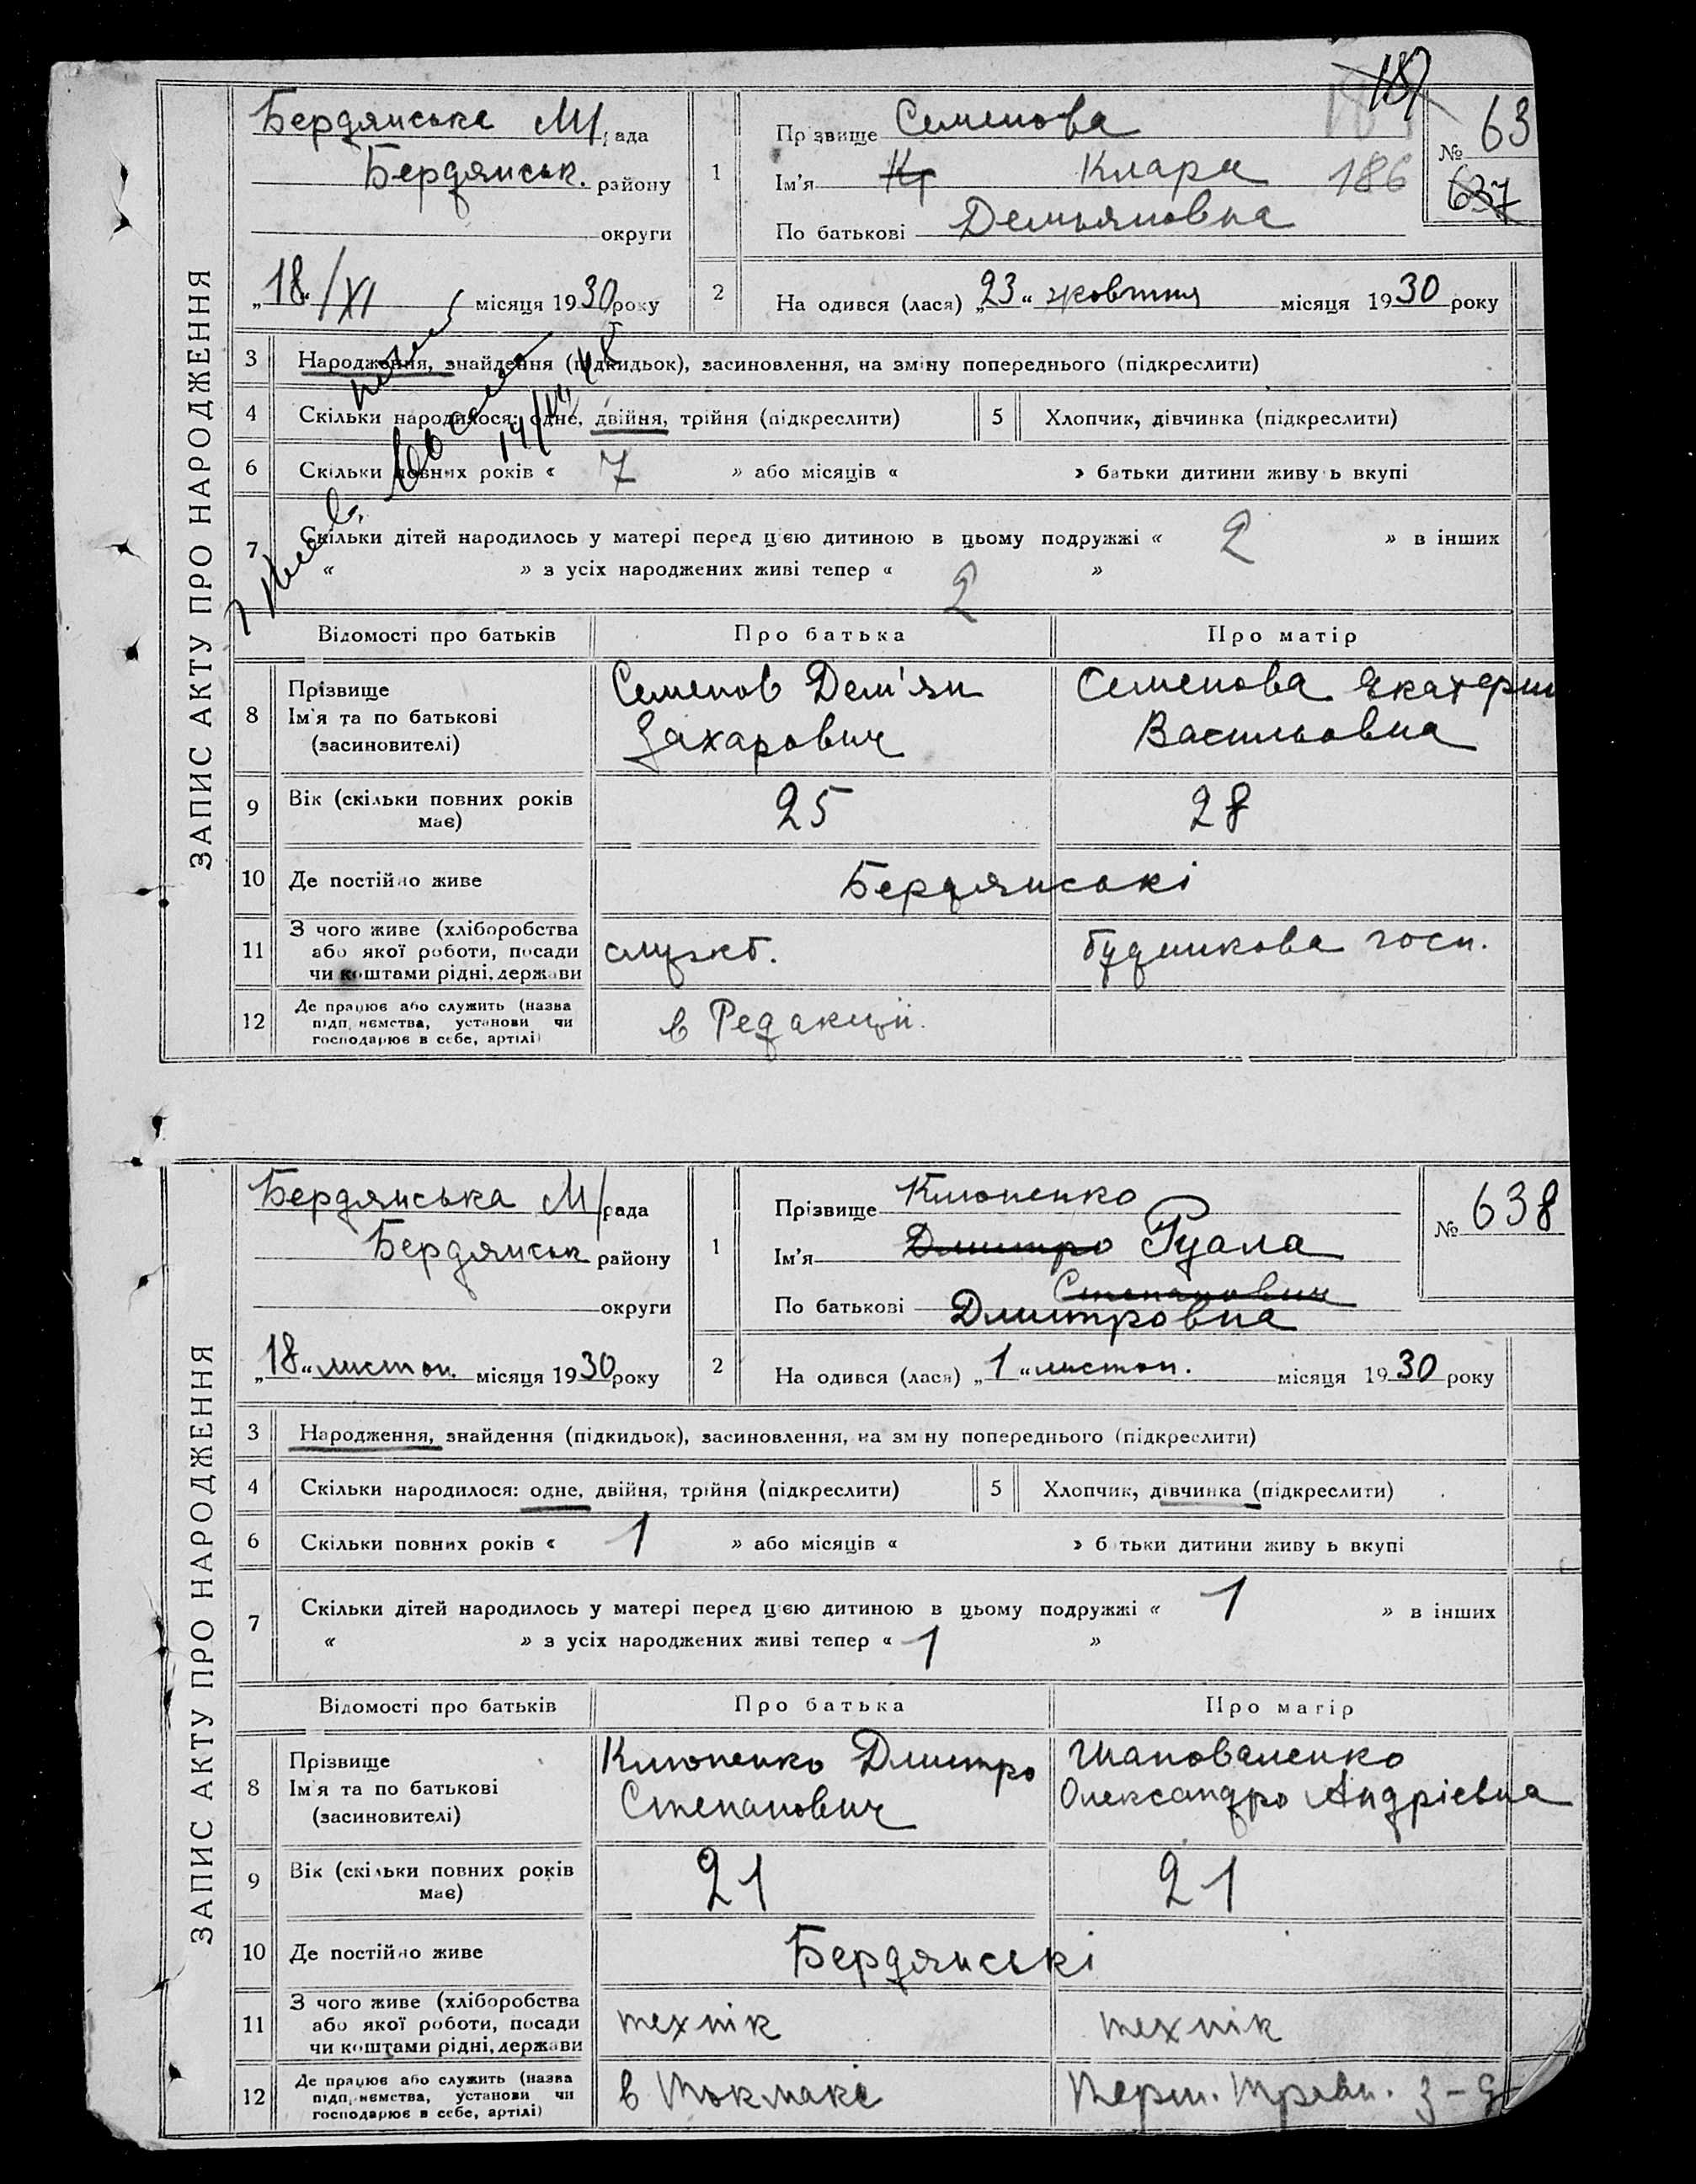 187
ЗАПИС АКТУ ПРО НАРОДЖЕННЯ
Бердянська М/рада
Бердянськ. району
округи
„18“/XI місяця 1930 року
1
Прізвище Семенова
Ім'я Кр Клара 186
По батькові Демьяновна
№ 63
637
2
На одився (лася) „23“ жовтня місяця 1930 року
3 Народження, знайдення (підкидьок), засиновлення, на зміну попереднього (підкреслити)
4 Скільки народилося: одне, двійня, трійня (підкреслити) 5 Хлопчик, дівчинка (підкреслити)
6 Скільки повних років « 7 » або місяців « » батьки дитини живу ь вкупі
7 Скільки дітей народилось у матері перед цією дитиною в цьому подружжі « 2 » в інших
« » з усіх народжених живі тепер « 2 »
Відомості про батьків Про батька Про матір
8 Прізвище Ім'я та по батькові (засиновителі)
Семенов Дем'ян Захарович
Семенова Екатерин Васильовна
9 Вік (скільки повних років має) 25 28
10 Де постійно живе Бердянські
11 З чого живе (хліборобства або якої роботи, посади чи коштами рідні, держави служб. будинкова госп.
12 Де працює або служить (назва підп, иємства, установи чи господарює в себе, артілі) в Редакції.
ЗАПИС АКТУ ПРО НАРОДЖЕННЯ
Бердянська М/рада
Бердянськ району
округи
„18“ листоп. місяця 1930 року
1
Прізвище Клюпенко
Ім'я Дмитро Руала
По батькові Степанович
Дмитровна
№ 638
2
На одився (лася) „1“ листоп. місяця 1930 року
3 Народження, знайдення (підкидьок), засиновлення, на зм ну попереднього (підкреслити)
4 Скільки народилося: одне, двійня, трійня (підкреслити) 5 Хлопчик, дівчинка (підкреслити)
6 Скільки повних років « 1 » або місяців « » б тьки дитини живу ь вкупі
7 Скільки дітей народилось у матері перед цією дитиною в цьому подружжі « 1 » в інших
« » з усіх народжених живі тепер « 1 »
Відомості про батьків Про батька Про матір
8 Прізвище Ім'я та по батькові (засиновителі)
Клюпенко Дмитро Степанович
Шаповаленко Олександра Андрієвна
9 Вік (скільки повних років має) 21 21
10 Де постійно живе Бердянські
11 З чого живе (хліборобства або якої роботи, посади чи коштами рідні, держави технік технік
12 Де працює або служить (назва підп, иємства, установи чи господарює в себе, артілі) в Токмаке Перш. Травн. з-д